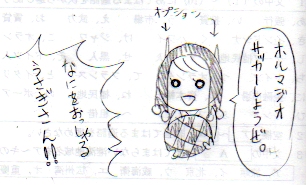 オプション
ホルマジオ
サッカーしようぜ。
なにをおっしゃる
うさぎさん!!